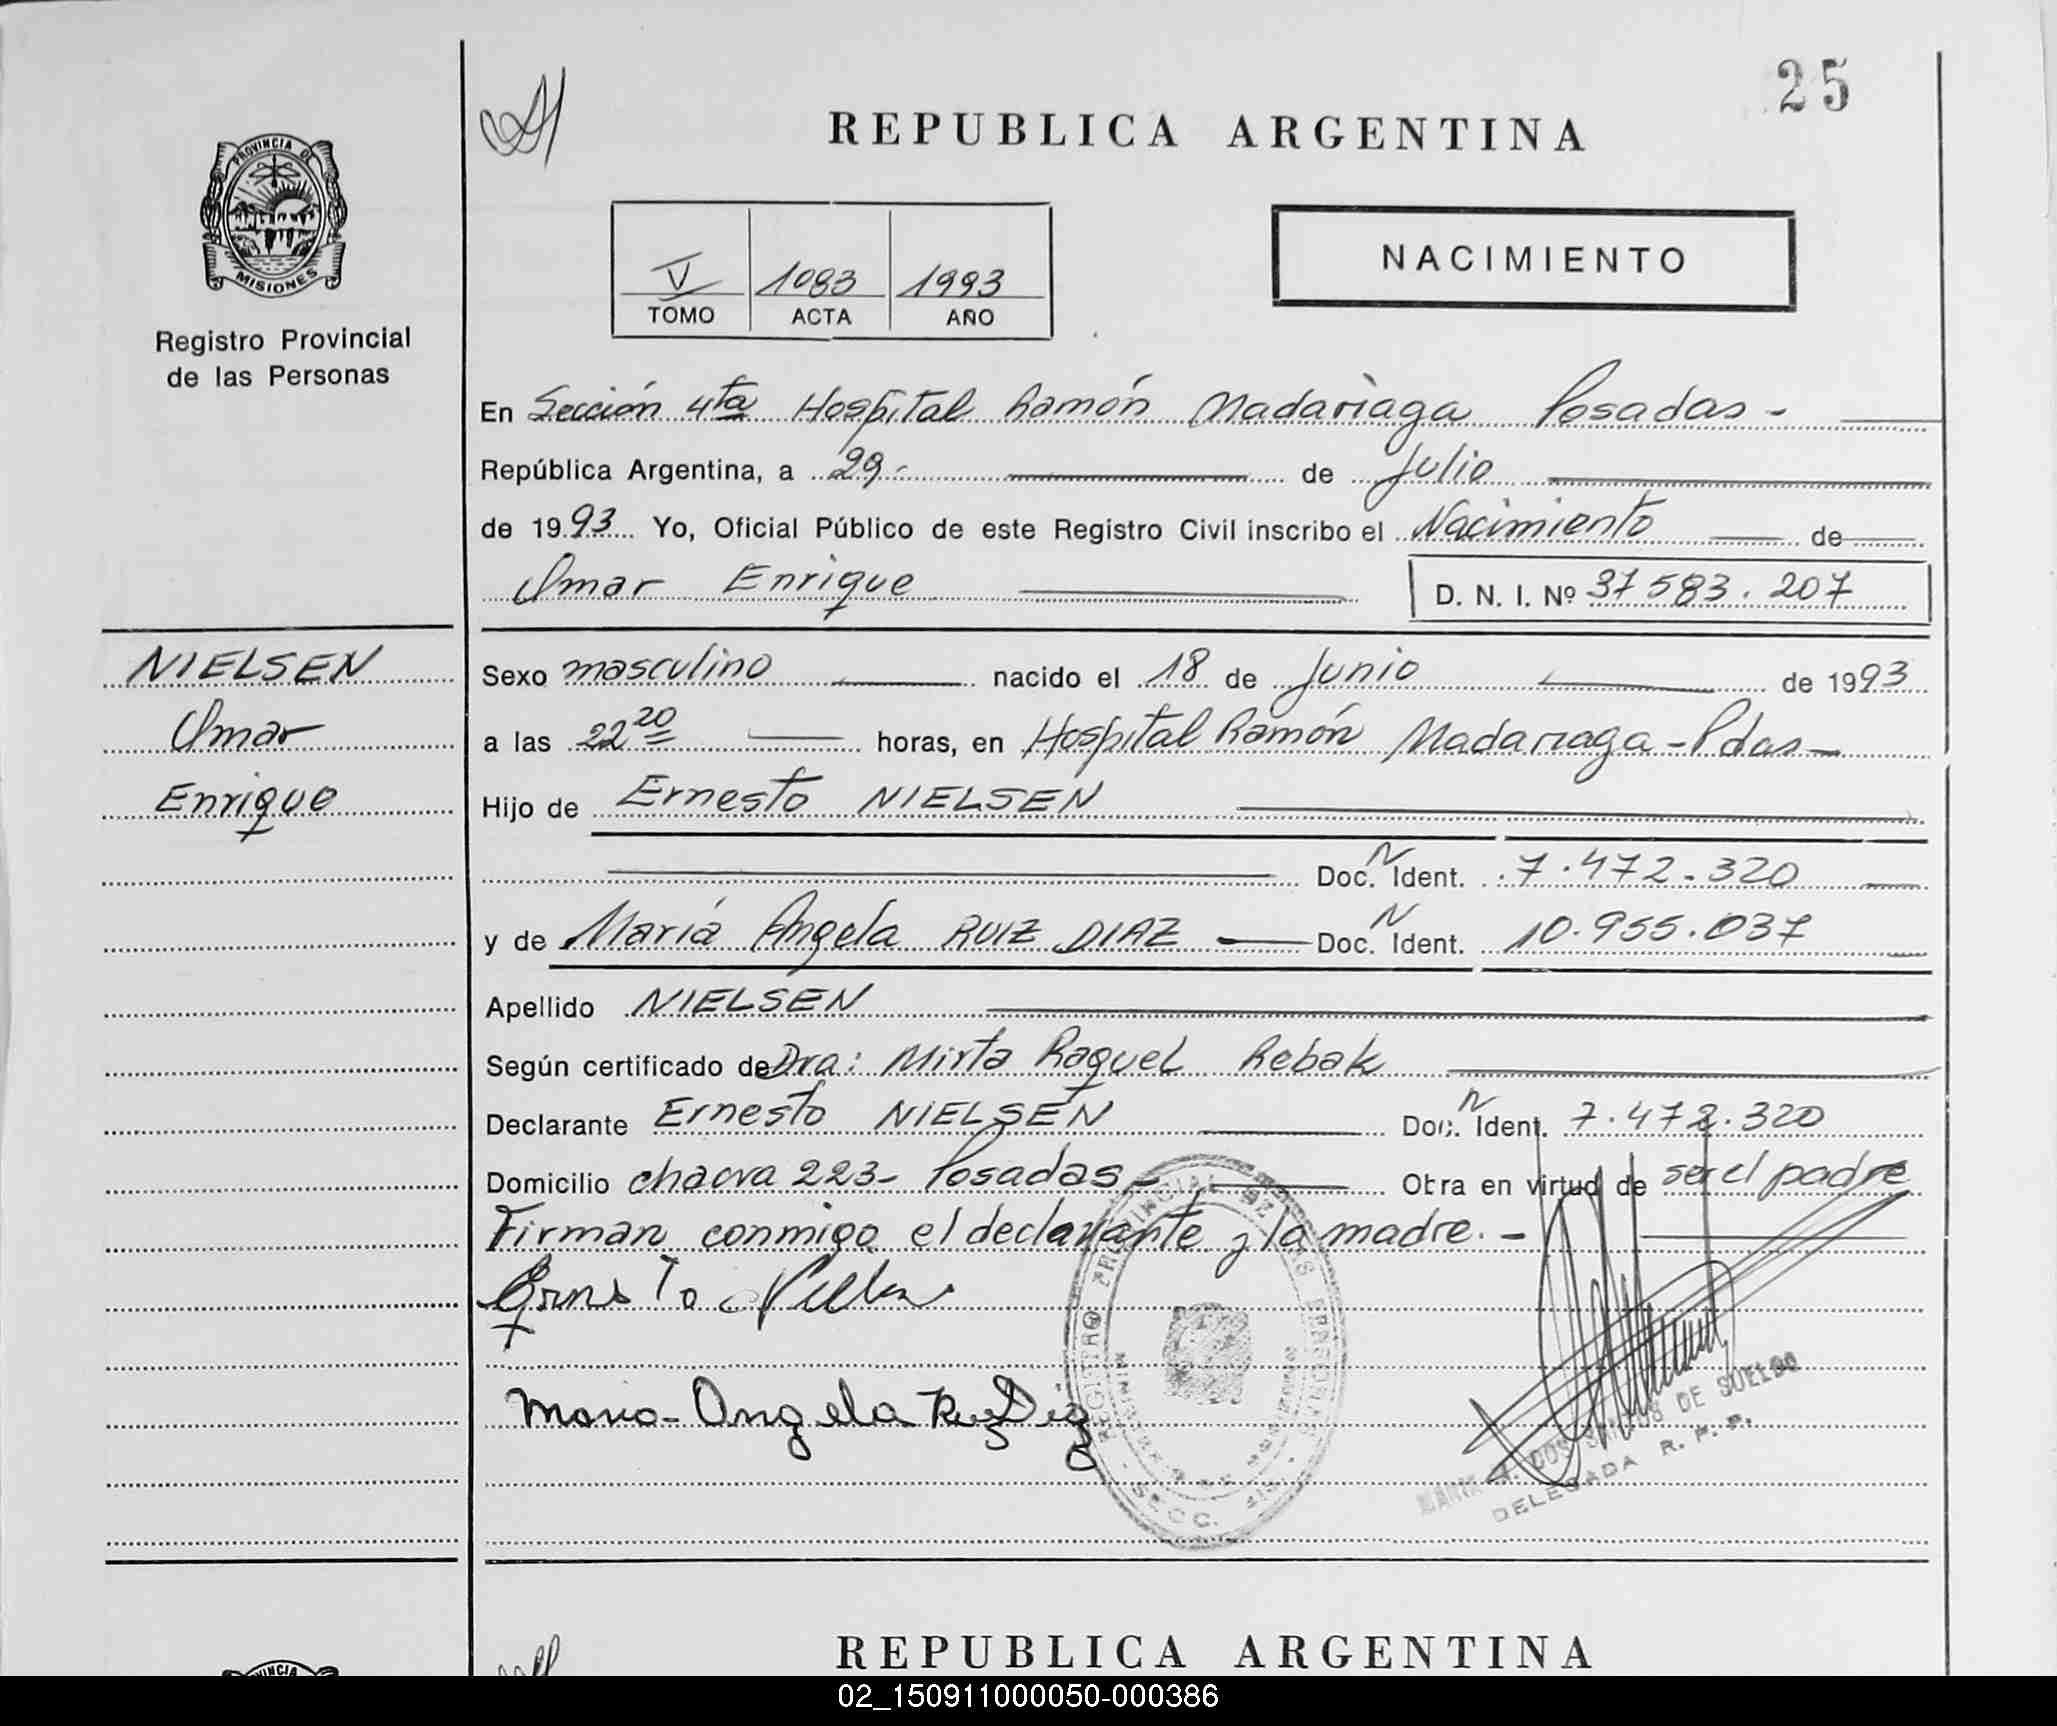 25
REPUBLICA ARGENTINA
PROVINCIA DE
MISIONES
Registro Provincial
de las Personas
V 1083 1993
TOMO ACTA AÑO
NACIMIENTO
En Sección 4ta Hospital Ramón Madariaga Posadas -
República Argentina, a 29.- de Julio
de 1993 Yo, Oficial Público de este Registro Civil inscribo el Nacimiento de
Omar Enrique D. N. I. Nº 37583.207
NIELSEN
Omar
Enrique
Sexo masculino nacido el 18 de Junio de 1993
a las 22 20 horas, en Hospital Ramón Madariaga - Pdas -
Hijo de Ernesto NIELSEN
Doc. N Ident. 7.472.320
y de María Angela RUIZ DIAZ Doc. N Ident. 10.955.037
Apellido NIELSEN
Según certificado de Dra: Mirta Raquel Rebak
Declarante Ernesto NIELSEN Doc. N Ident. 7.472.320
Domicilio chacra 223- Posadas - Obra en virtud de ser el padre
Firman conmigo el declarante y la madre. -
REGISTRO PROVINCIAL DE LAS PERSONAS
SECC.
DOS SANTOS DE SUELDO
DELEGADA R. P. P.
REPUBLICA ARGENTINA
02_150911000050-000386